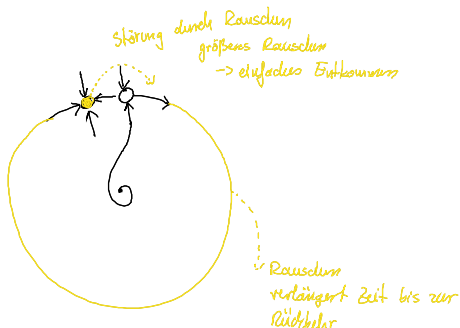 Störung durch Rauschen
größeres Rauschen
-> einfaches Entkommen
Rauschen
verlängert Zeit bis zur
Rückkehr